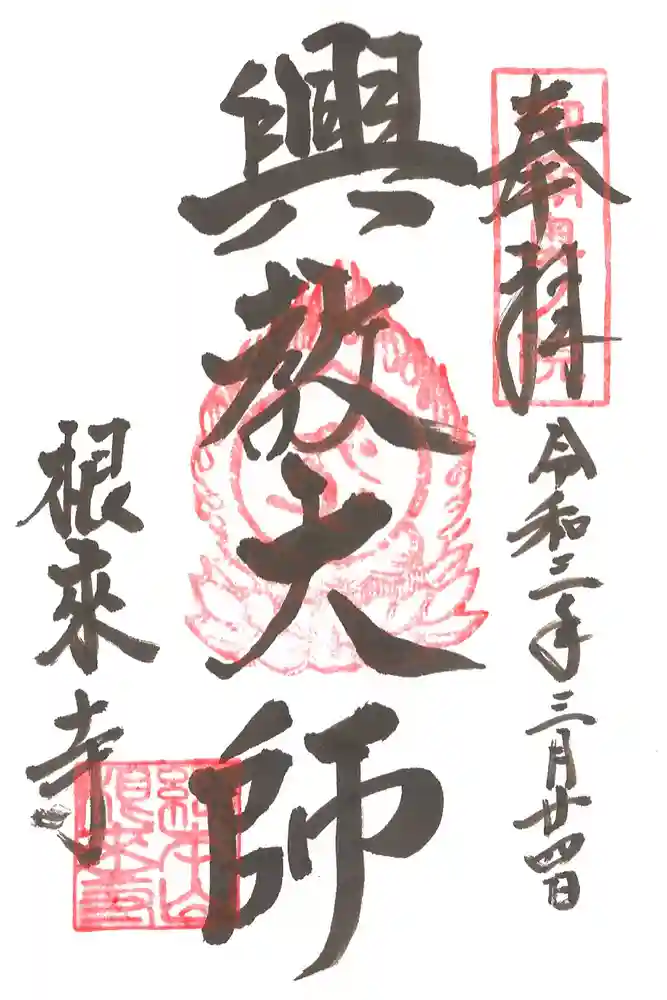 奉拜
令和三年三月廿四日
興教大師
根來寺